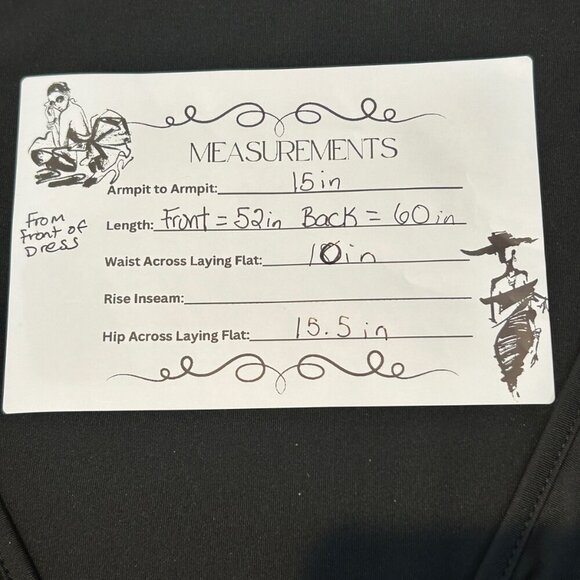 MEASUREMENTS
Armpit to Armpit: 15 in
From
front of
Dress
Length: Front = 52in Back = 60 in
Waist Across Laying Flat: 10in
Rise Inseam:
Hip Across Laying Flat: 15.5 in